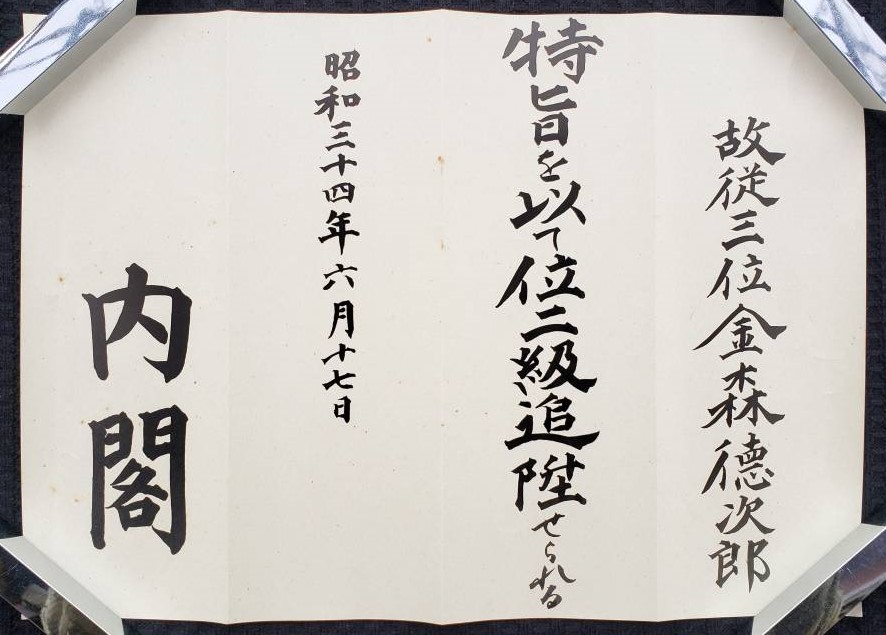 故従三位金森徳次郎
特旨を以て位二級追陞せられる
昭和三十四年六月十七日
内閣